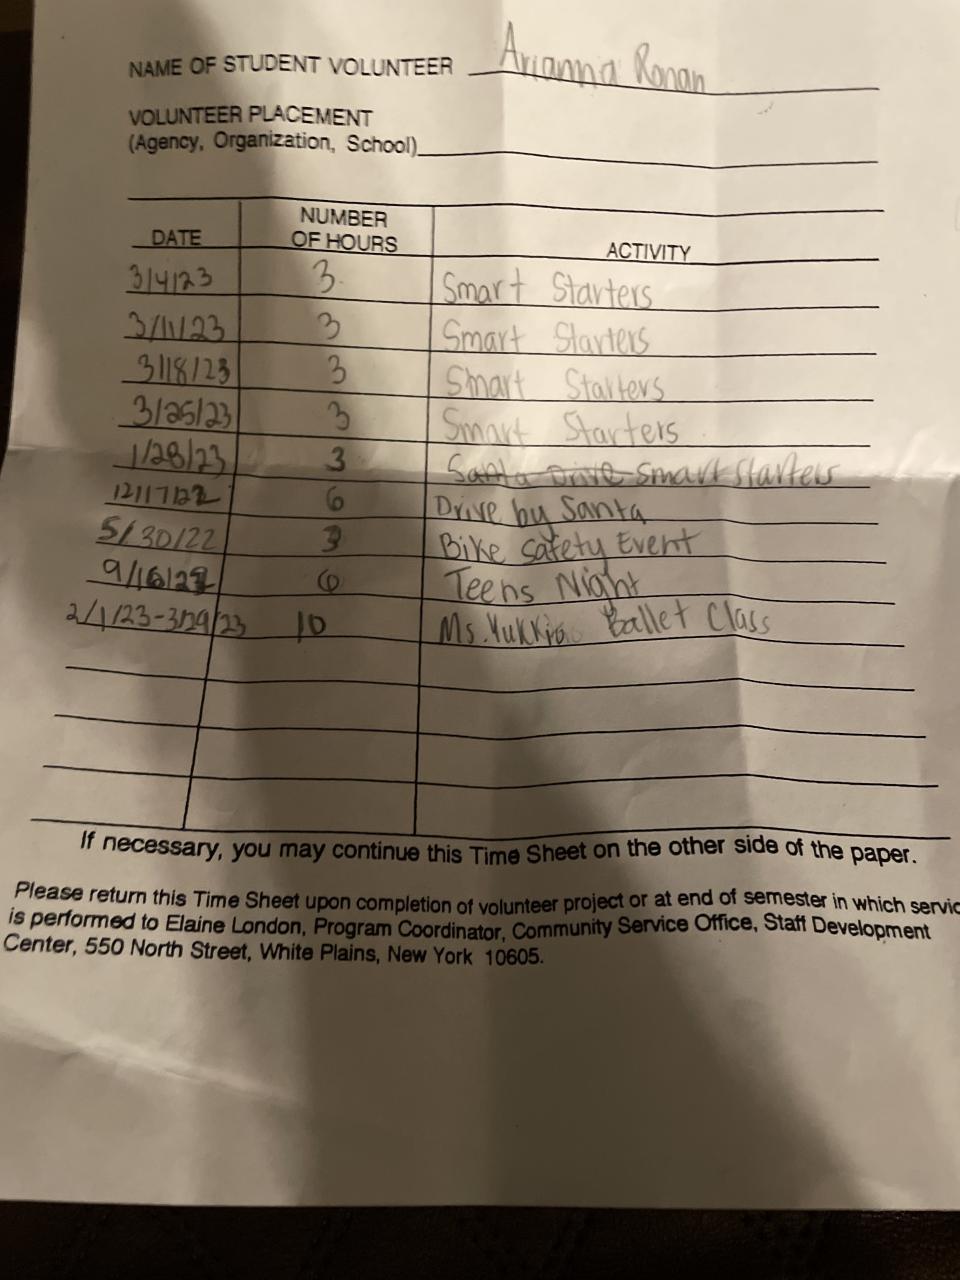 NAME OF STUDENT VOLUNTEER Arianna Ronan
VOLUNTEER PLACEMENT
(Agency, Organization, School)
DATE NUMBER OF HOURS ACTIVITY
3/4/23 3 Smart Starters
3/11/23 3 Smart Starters
3/18/23 3 Smart Starters
3/25/23 3 Smart Starters
1/28/23 3 Santa Drive Smart Starters
12/17/22 6 Drive by Santa
5/30/22 3 Bike Safety Event
9/16/22 6 Teens Night
2/1/23-3/29/23 10 Ms. Ballet Class
If necessary, you may continue this Time Sheet on the other side of the paper.
Please return this Time Sheet upon completion of volunteer project or at end of semester in which servic
is performed to Elaine London, Program Coordinator, Community Service Office, Staff Development
Center, 550 North Street, White Plains, New York 10605.